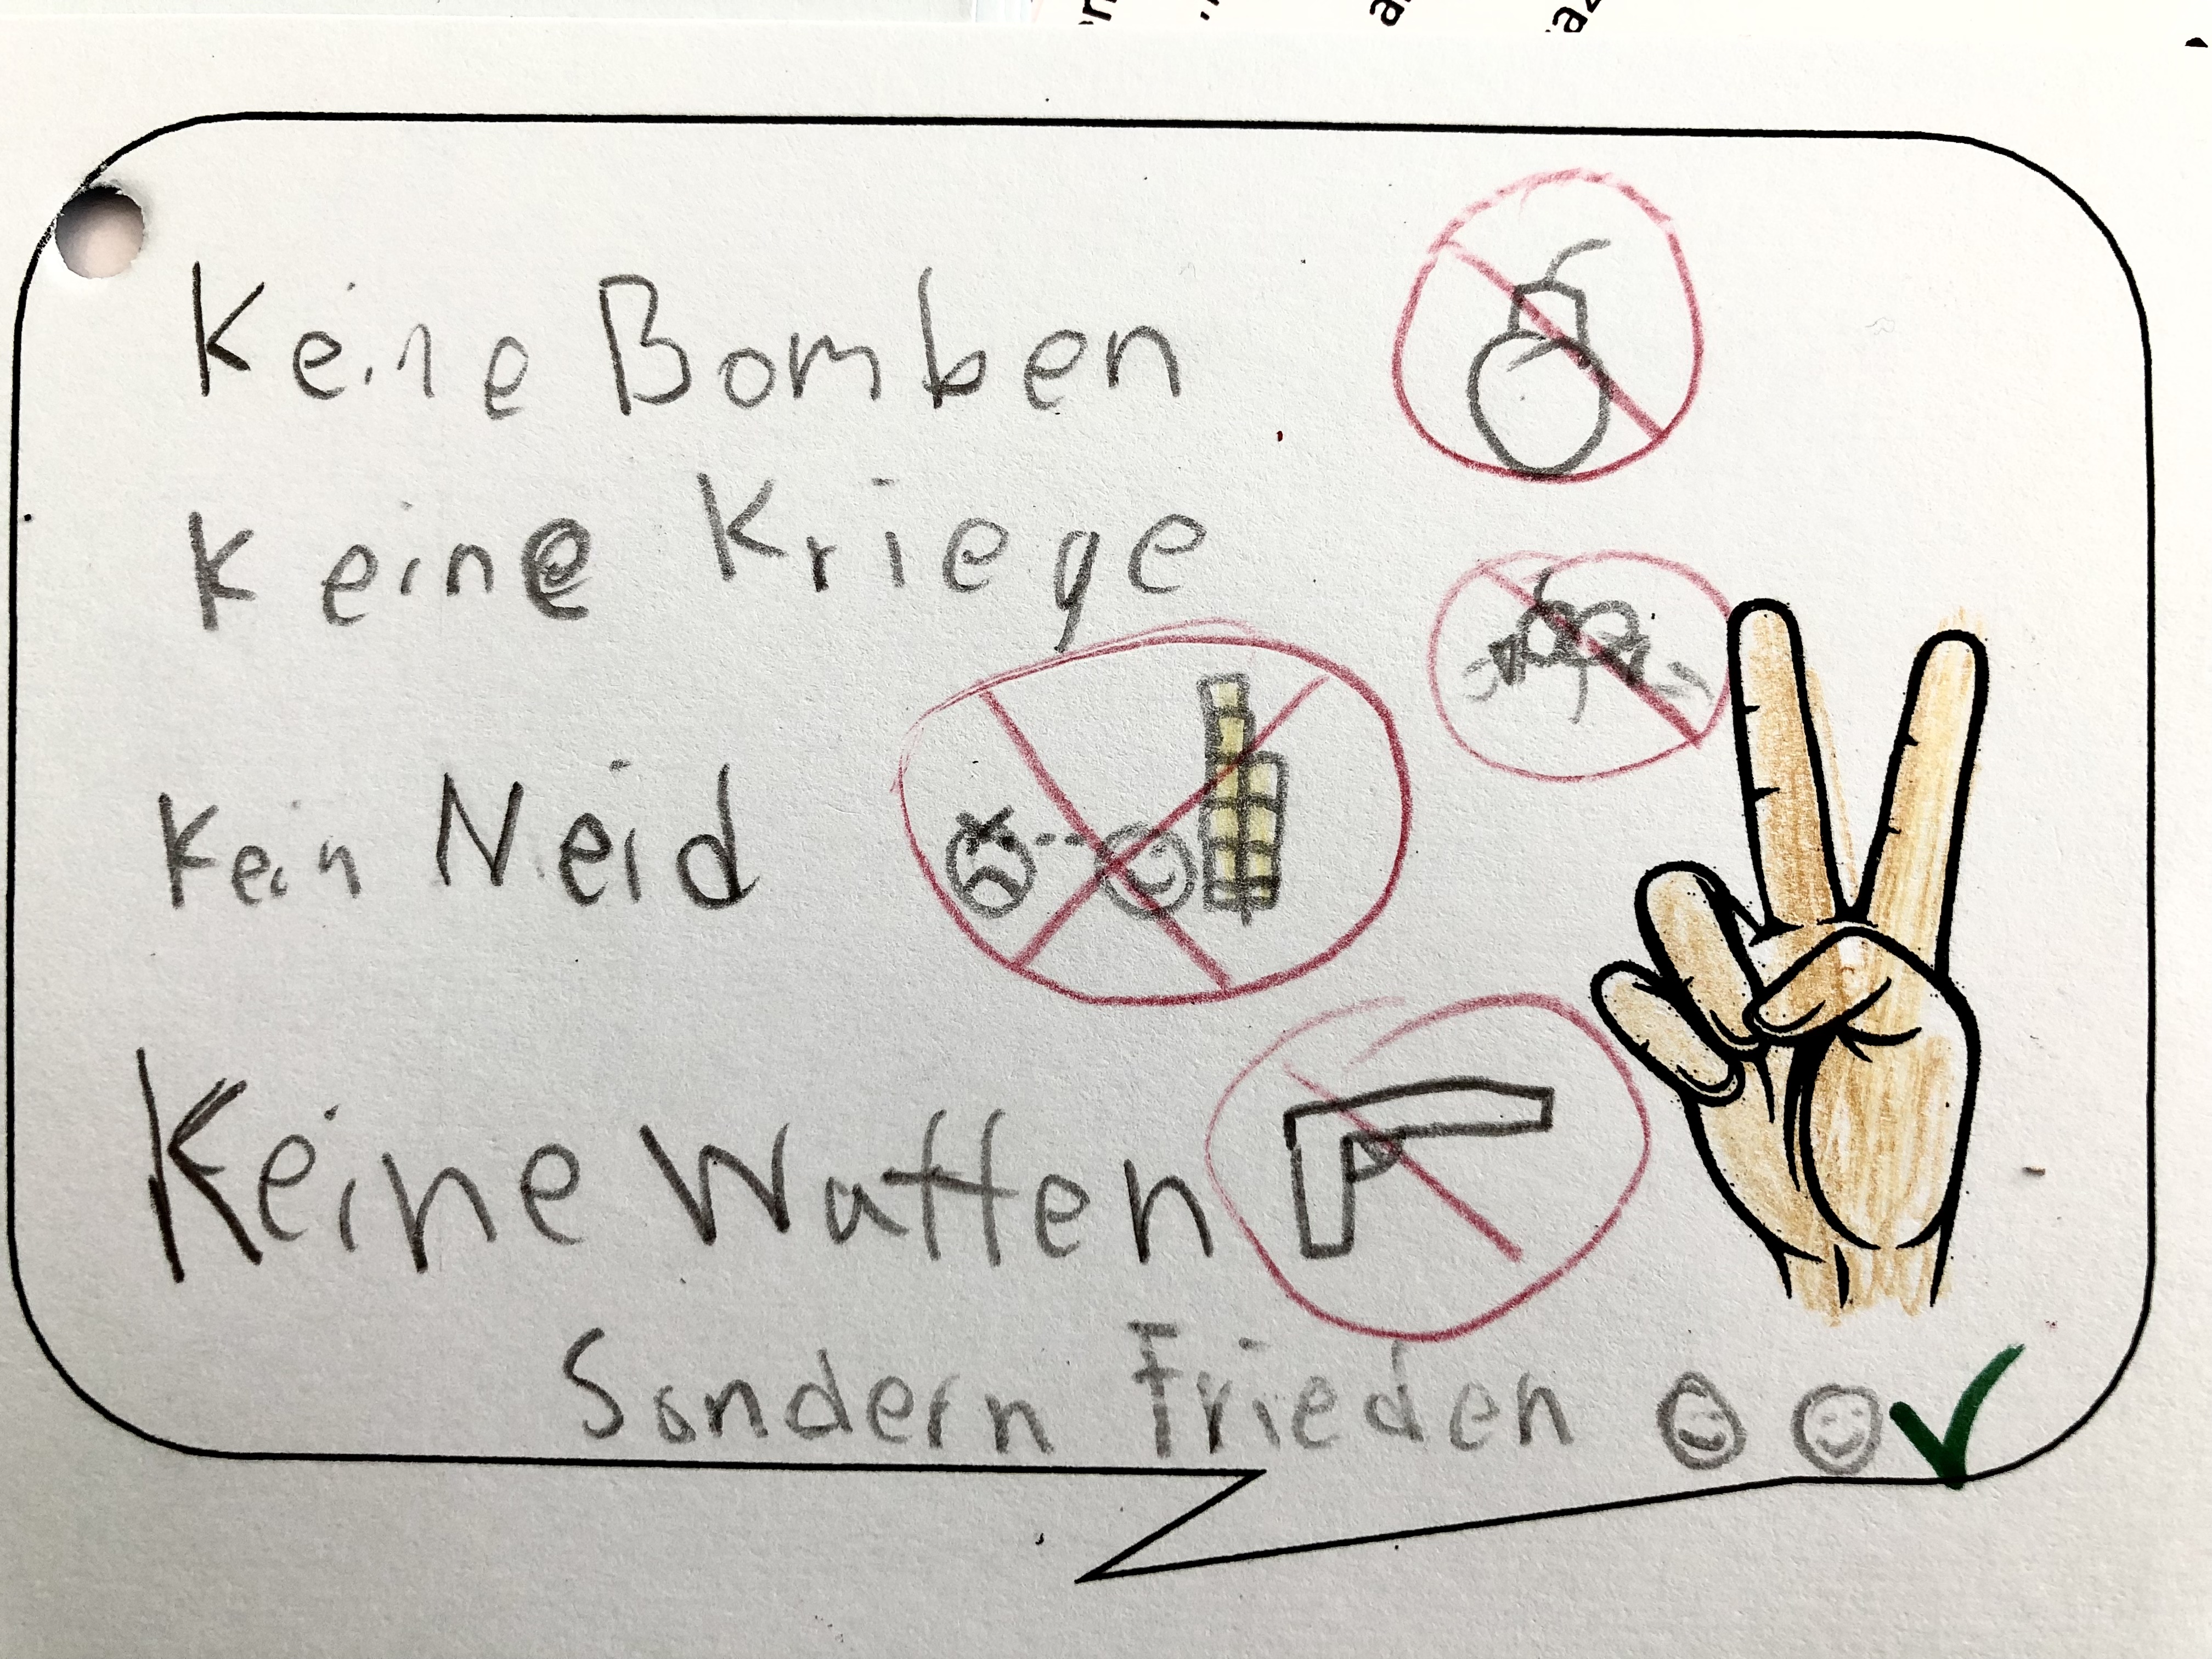 Keine Bomben
Keine Kriege
Kein Neid
Keine Waffen
Sondern Frieden